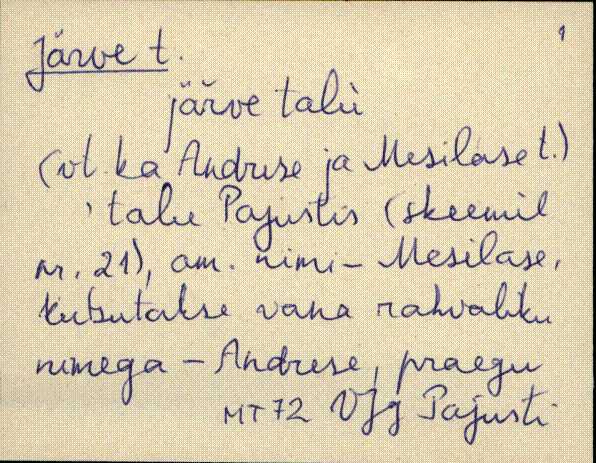 1
Järve t.
järve talu
(vt. ka Andrese ja Mesilase t.)
' talu Pajustis (skeemil
nr. 21), am. nimi – Mesilase,
kutsutakse vana rahvaliku
nimega – Andrese, praegu
MT 72 VJg Pajusti